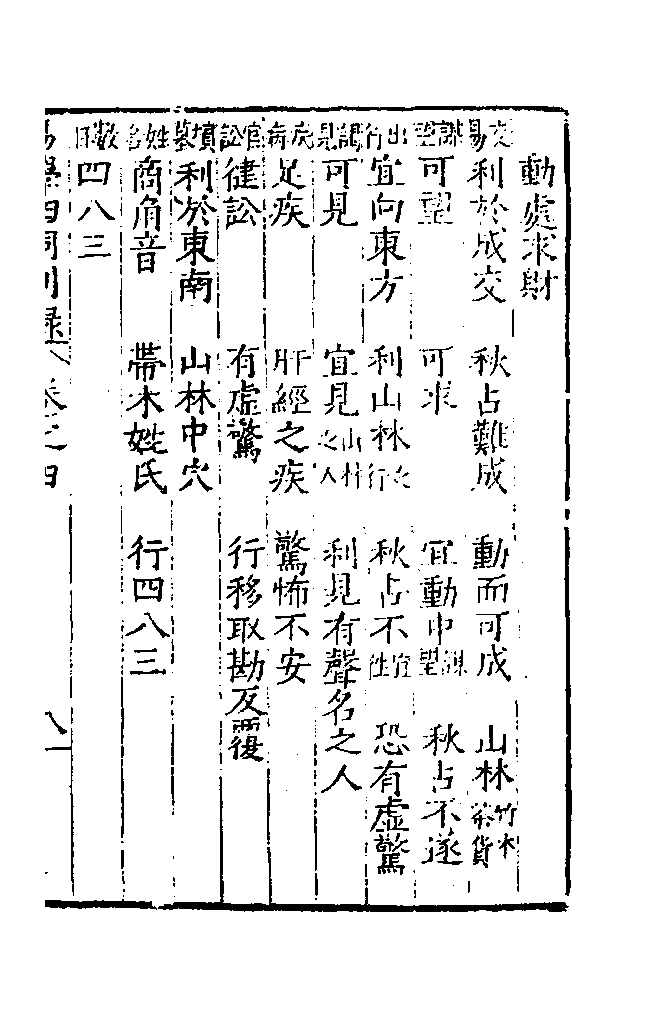 動處求財
交易 利於成交 秋占難成 動而可成 山林竹木茶貨
謀望 可望 可求 宜動中謀望 秋占不遂
出行 宜向東方 利山林之行 秋占不宜往 恐有虛驚
謁見 可見 宜見山林之人 利見有聲名之人
疾病 足疾 肝經之疾 驚怖不安
官訟 健訟 有虛驚 行移取勘反覆
墳墓 利於東南 山林中穴
姓名 商角音 帶木姓氏 行四八三
數目 四八三
卷之四